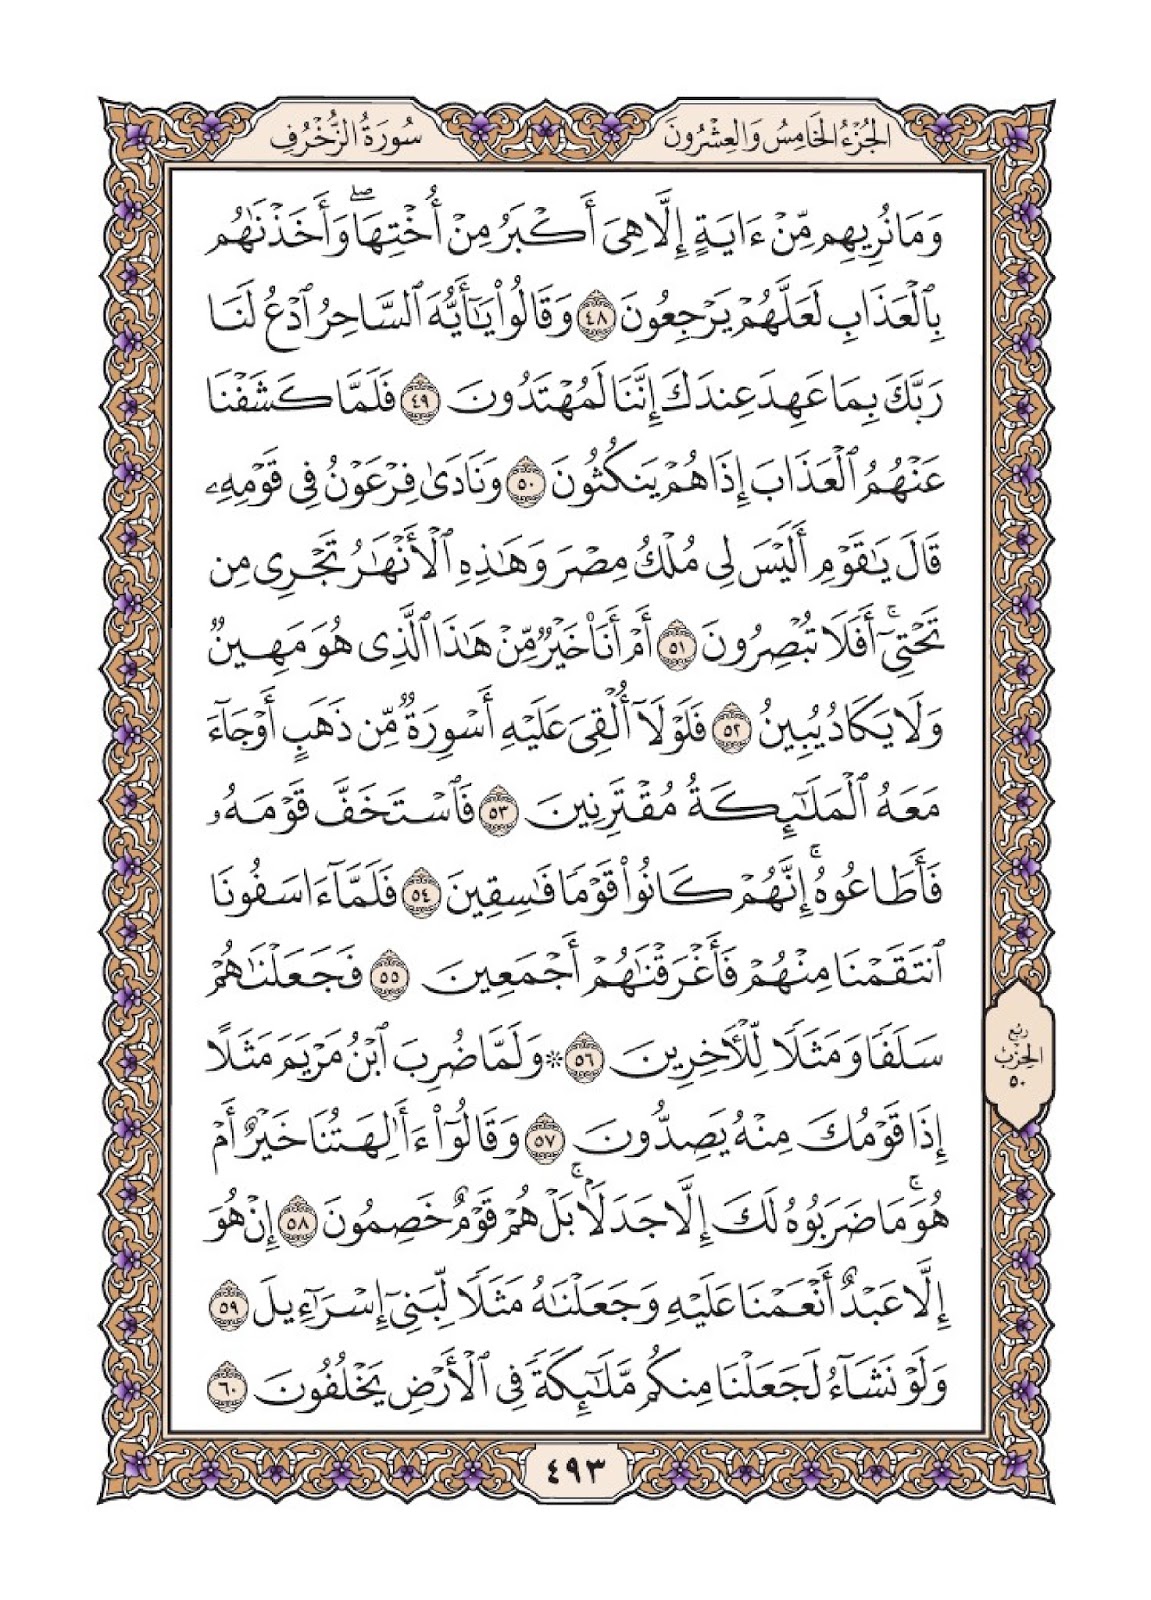 الجزء الخامس والعشرون
سورة الزخرف
وَمَا نُرِيهِم مِّنْ ءَايَةٍ إِلَّا هِىَ أَكْبَرُ مِنْ أُخْتِهَا ۖ وَأَخَذْنَٰهُم
بِٱلْعَذَابِ لَعَلَّهُمْ يَرْجِعُونَ ٤٨ وَقَالُوا۟ يَٰٓأَيُّهَ ٱلسَّاحِرُ ٱدْعُ لَنَا
رَبَّكَ بِمَا عَهِدَ عِندَكَ إِنَّنَا لَمُهْتَدُونَ ٤٩ فَلَمَّا كَشَفْنَا
عَنْهُمُ ٱلْعَذَابَ إِذَا هُمْ يَنكُثُونَ ٥٠ وَنَادَىٰ فِرْعَوْنُ فِى قَوْمِهِۦ
قَالَ يَٰقَوْمِ أَلَيْسَ لِى مُلْكُ مِصْرَ وَهَٰذِهِ ٱلْأَنْهَٰرُ تَجْرِى مِن
تَحْتِىٓ ۖ أَفَلَا تُبْصِرُونَ ٥١ أَمْ أَنَا۠ خَيْرٌ مِّنْ هَٰذَا ٱلَّذِى هُوَ مَهِينٌ
وَلَا يَكَادُ يُبِينُ ٥٢ فَلَوْلَآ أُلْقِىَ عَلَيْهِ أَسْوِرَةٌ مِّن ذَهَبٍ أَوْ جَآءَ
مَعَهُ ٱلْمَلَٰٓئِكَةُ مُقْتَرِنِينَ ٥٣ فَٱسْتَخَفَّ قَوْمَهُۥ
فَأَطَاعُوهُ ۚ إِنَّهُمْ كَانُوا۟ قَوْمًا فَٰسِقِينَ ٥٤ فَلَمَّآ ءَاسَفُونَا
ٱنتَقَمْنَا مِنْهُمْ فَأَغْرَقْنَٰهُمْ أَجْمَعِينَ ٥٥ فَجَعَلْنَٰهُمْ
سَلَفًا وَمَثَلًا لِّلْءَاخِرِينَ ٥٦ ۞ وَلَمَّا ضُرِبَ ٱبْنُ مَرْيَمَ مَثَلًا
إِذَا قَوْمُكَ مِنْهُ يَصِدُّونَ ٥٧ وَقَالُوٓا۟ ءَأَٰلِهَتُنَا خَيْرٌ أَمْ
هُوَ ۚ مَا ضَرَبُوهُ لَكَ إِلَّا جَدَلًۢا ۚ بَلْ هُمْ قَوْمٌ خَصِمُونَ ٥٨ إِنْ هُوَ
إِلَّا عَبْدٌ أَنْعَمْنَا عَلَيْهِ وَجَعَلْنَٰهُ مَثَلًا لِّبَنِىٓ إِسْرَٰٓءِيلَ ٥٩
وَلَوْ نَشَآءُ لَجَعَلْنَا مِنكُم مَّلَٰٓئِكَةً فِى ٱلْأَرْضِ يَخْلُفُونَ ٦٠
ربع
الحزب
٥٠
٤٩٣